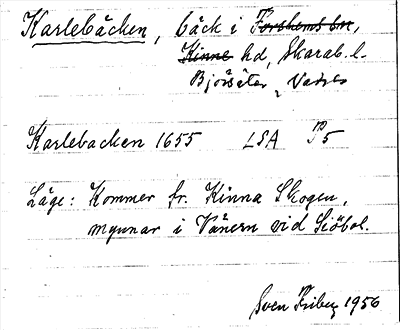 Karlebäcken, bäck i Forshems sn,
Kinne hd, Skarab. l.
Björsäter, Vadsbo
Karlebacken 1655 LSA P5
Läge: Kommer fr. Kinna Skogen,
mynnar i Vänern vid Sjöbol.
Sven Friberg 1956